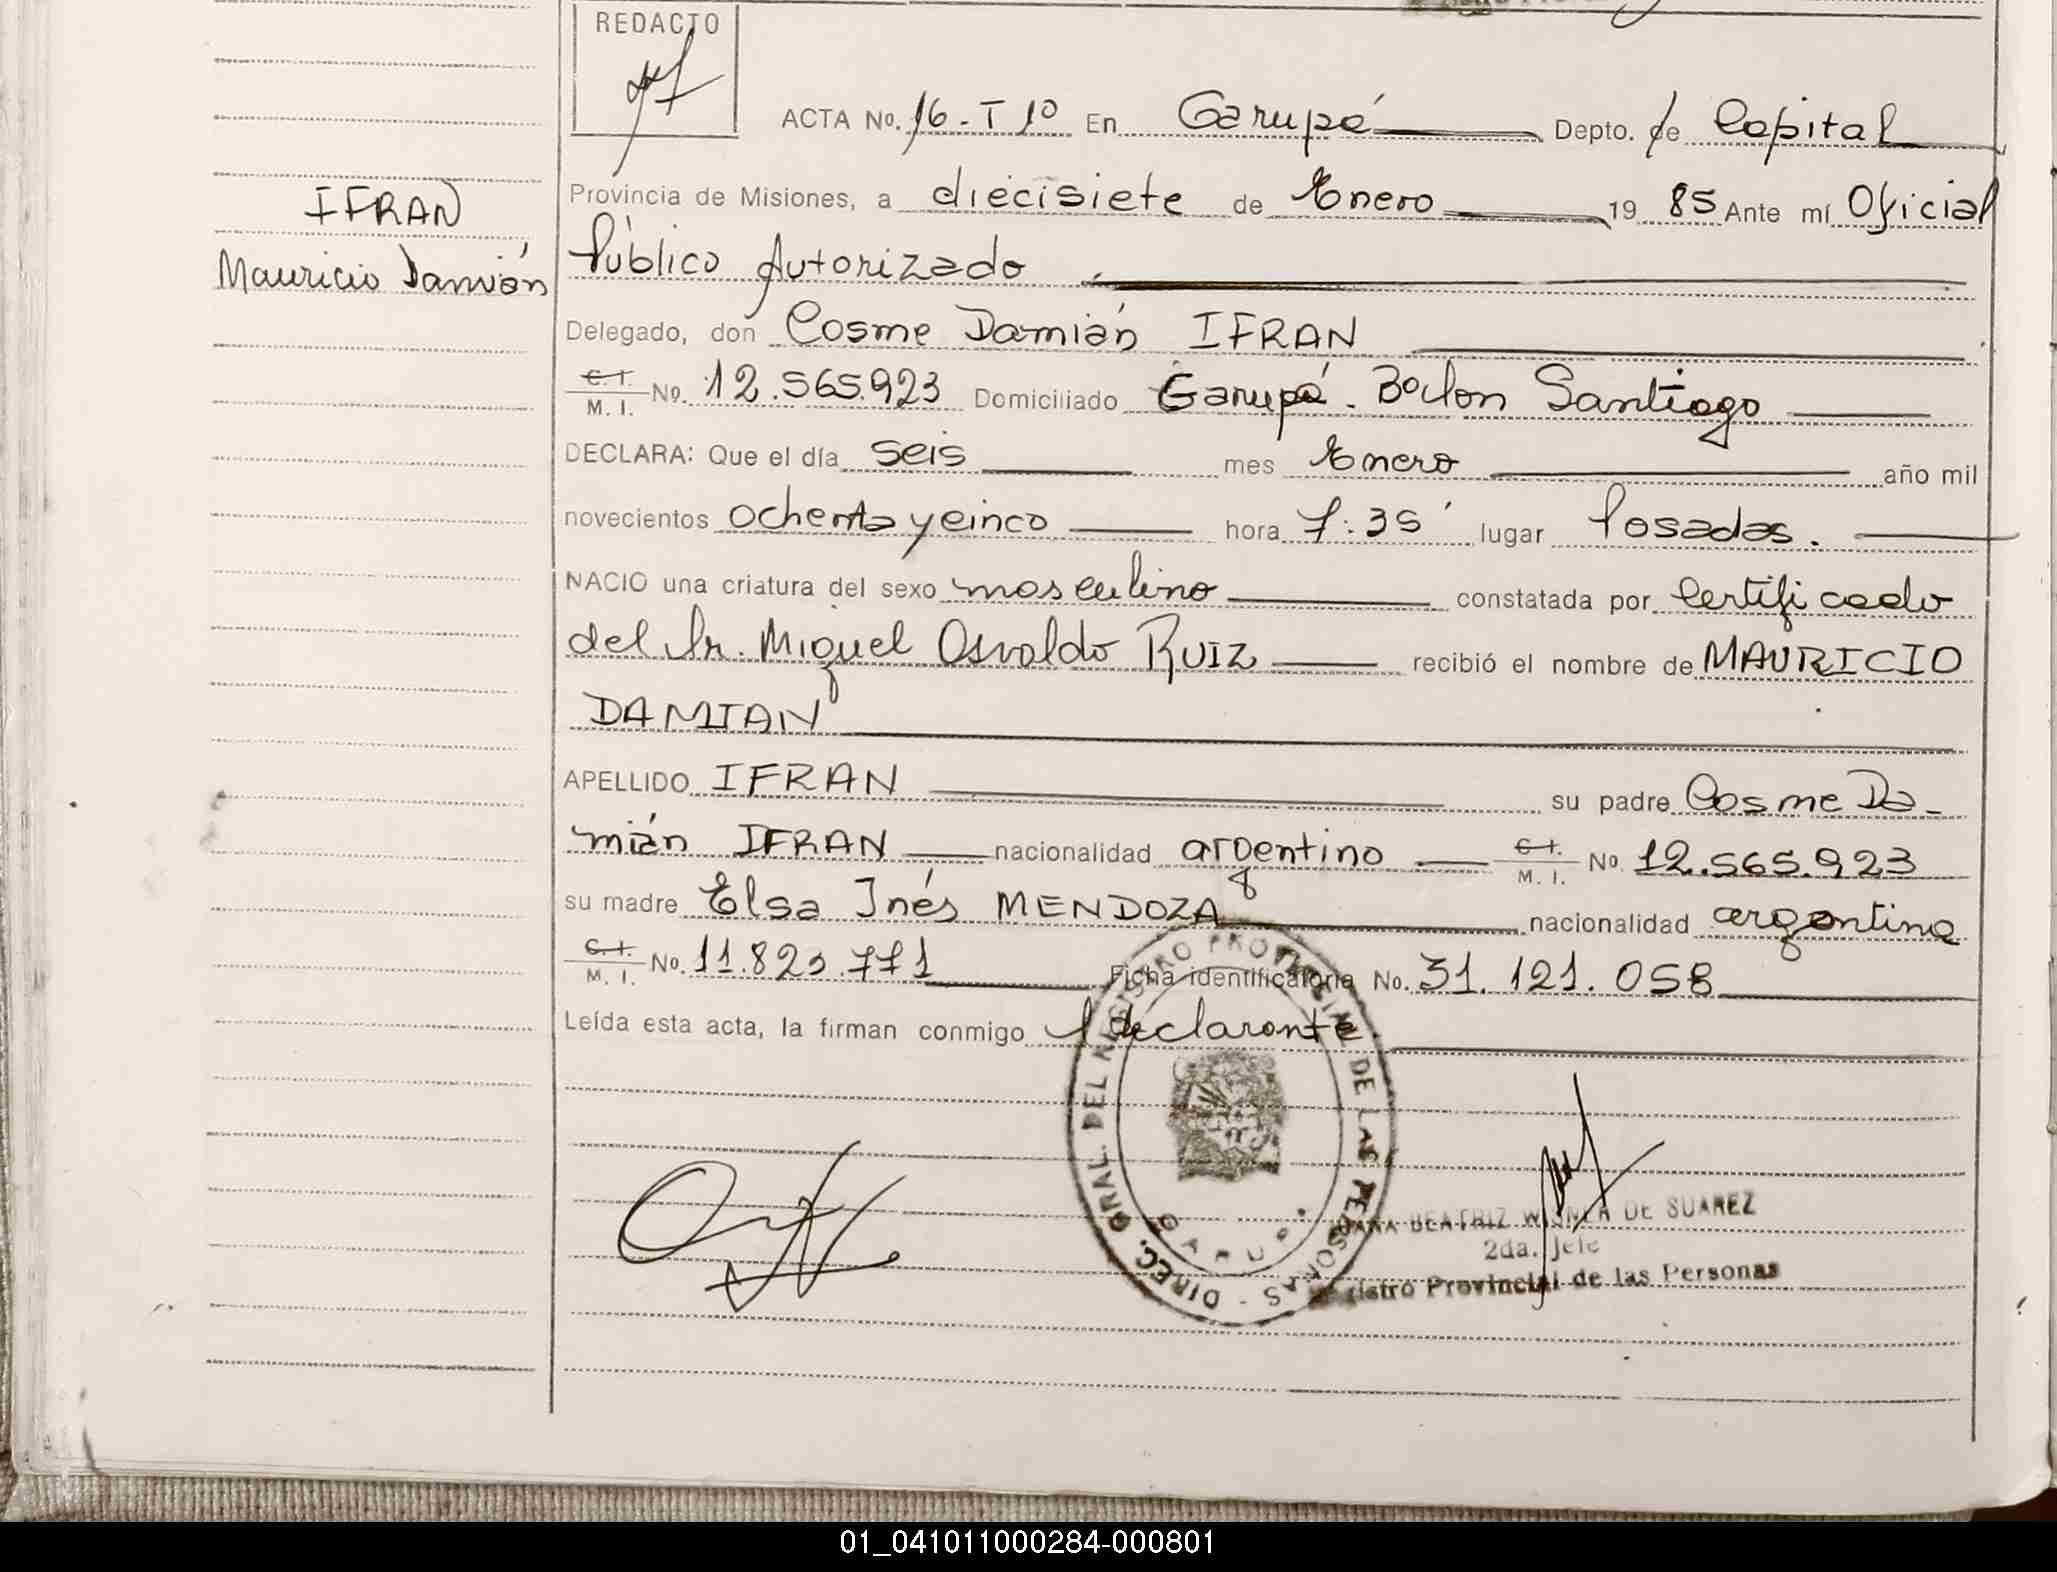 REDACTO
ACTA No. 16 - T 1º En Garupá Depto. de Capital
IFRAN
Mauricio Damián
Provincia de Misiones, a diecisiete de Enero 19 85 Ante mí Oficial
Público Autorizado
Delegado, don Cosme Damián IFRAN
C. I. M. I. No. 12.565.923 Domiciliado Garupá - Santiago
DECLARA: Que el día seis mes Enero año mil
novecientos ochenta y cinco hora 7:35' lugar Posadas.
NACIO una criatura del sexo masculino constatada por Certificado
del Dr. Miguel Osvaldo RUIZ recibió el nombre de MAURICIO
DAMIAN
APELLIDO IFRAN su padre Cosme Da-
mián IFRAN nacionalidad argentino C. I. M. I. No. 12.565.923
su madre Elsa Inés MENDOZA nacionalidad argentina
C. I. M. I. No. 11.823.771 Ficha identificatoria No. 31.121.058
Leída esta acta, la firman conmigo el declarante
DIREC. GRAL. DEL REGISTRO PROVINCIAL DE LAS PERSONAS -
BEATRIZ DE SUAREZ
2da. Jefe
Registro Provincial de las Personas
01_041011000284-000801